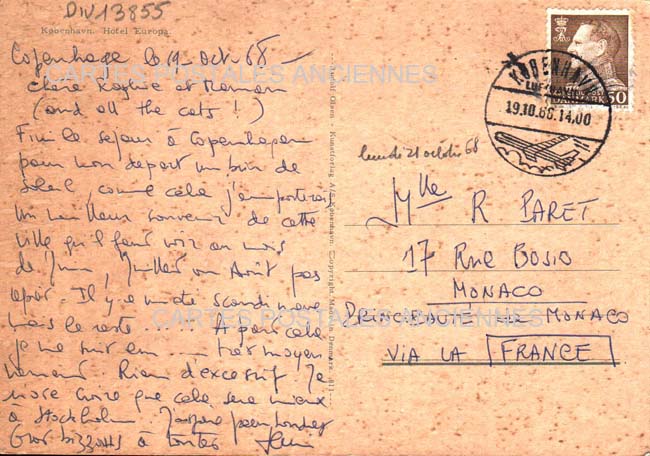 DIV13855
København. Hotel Europa.
Copenhage le 19 oct. 68 –
Chère Roghie et Maman
(and all the cats !)
Fini le séjour à Copenhagen
pour mon départ un brin de
soleil comme cela j'emporterai
un meilleur souvenir de cette
ville qu'il faut voir au mois
de Juin, Juillet ou Août pas
après. Il y a un côté scandinave
mais le reste ... A part cela
je me suis ... très moyen
Rien d'excessif Je
crois que cela sera mieux
à Stockholm. J'espère
Gros bizzous à toutes
CARTES POSTALES ANCIENNES
CARTES POSTALES ANCIENNES
Rudolf Olsen - Kunstforlag A/S København. Copyright. Made in Denmark.
KØBENHAVN
LUFTHAVN
19.10.68.14.00
DANMARK 50
lundi 21 octobre 68
Mlle R PARET
17 Rue BOSIO
MONACO
PRINCIPAUTE DE MONACO
VIA LA FRANCE